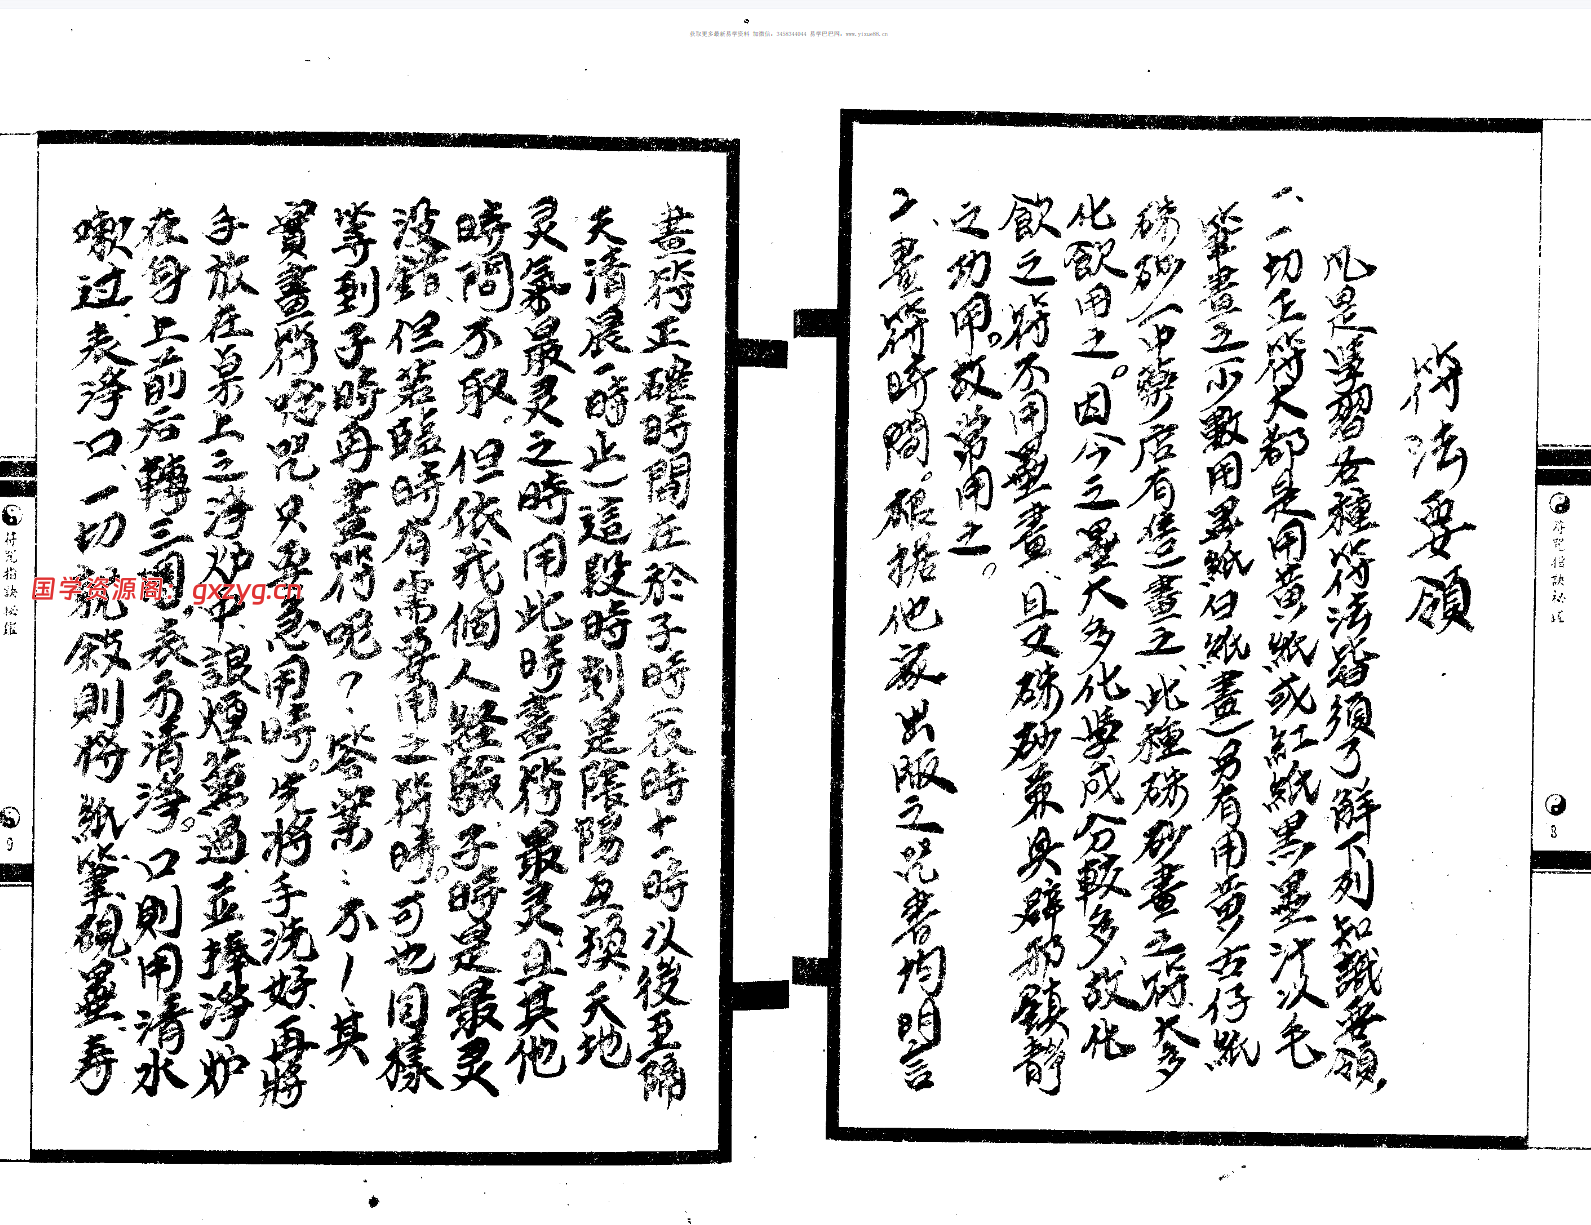 获取更多最新易学资料 加微信：3456344044 易学吧吧网：www.yixue88.cn
符法要領
凡是學習各種符法皆須了解下列知識要領，
一、一切王符大都是用黃紙或紅紙黑墨汁以毛
筆畫之（少數用墨紙白紙畫）另有用黃古仔紙
硃砂（中藥店有售）畫之、此種硃砂畫之符、大多
化飲用之。因今之墨大多化學成分較多、故化
飲之符不用墨畫、且又硃砂兼具辟邪鎮靜
之功用。故常用之。
2、畫符時間。根據他家出版之咒書均明言
畫符正確時間在於子時（夜時十一時以後至隔
天清晨一時止）這段時刻是陰陽互換、天地
灵氣最灵之時用此時畫符最灵、且其他
時間不取、但依我個人經驗子時是最灵
沒錯、但若臨時有需要用之符時。可也同樣
等到子時再畫符呢？、答案：不！其
實畫符唸咒、只要急用時。先將手洗好、再將
手放在桌上之淨炉中、讓煙薰過並捧淨炉
在身上前后轉三圈、表示清淨。口則用清水
嗽过表淨口、一切就敍則将紙筆硯墨壽
符咒指訣秘鑑
8
符咒指訣秘鑑
9
国学资源阁：gxzyg.cn